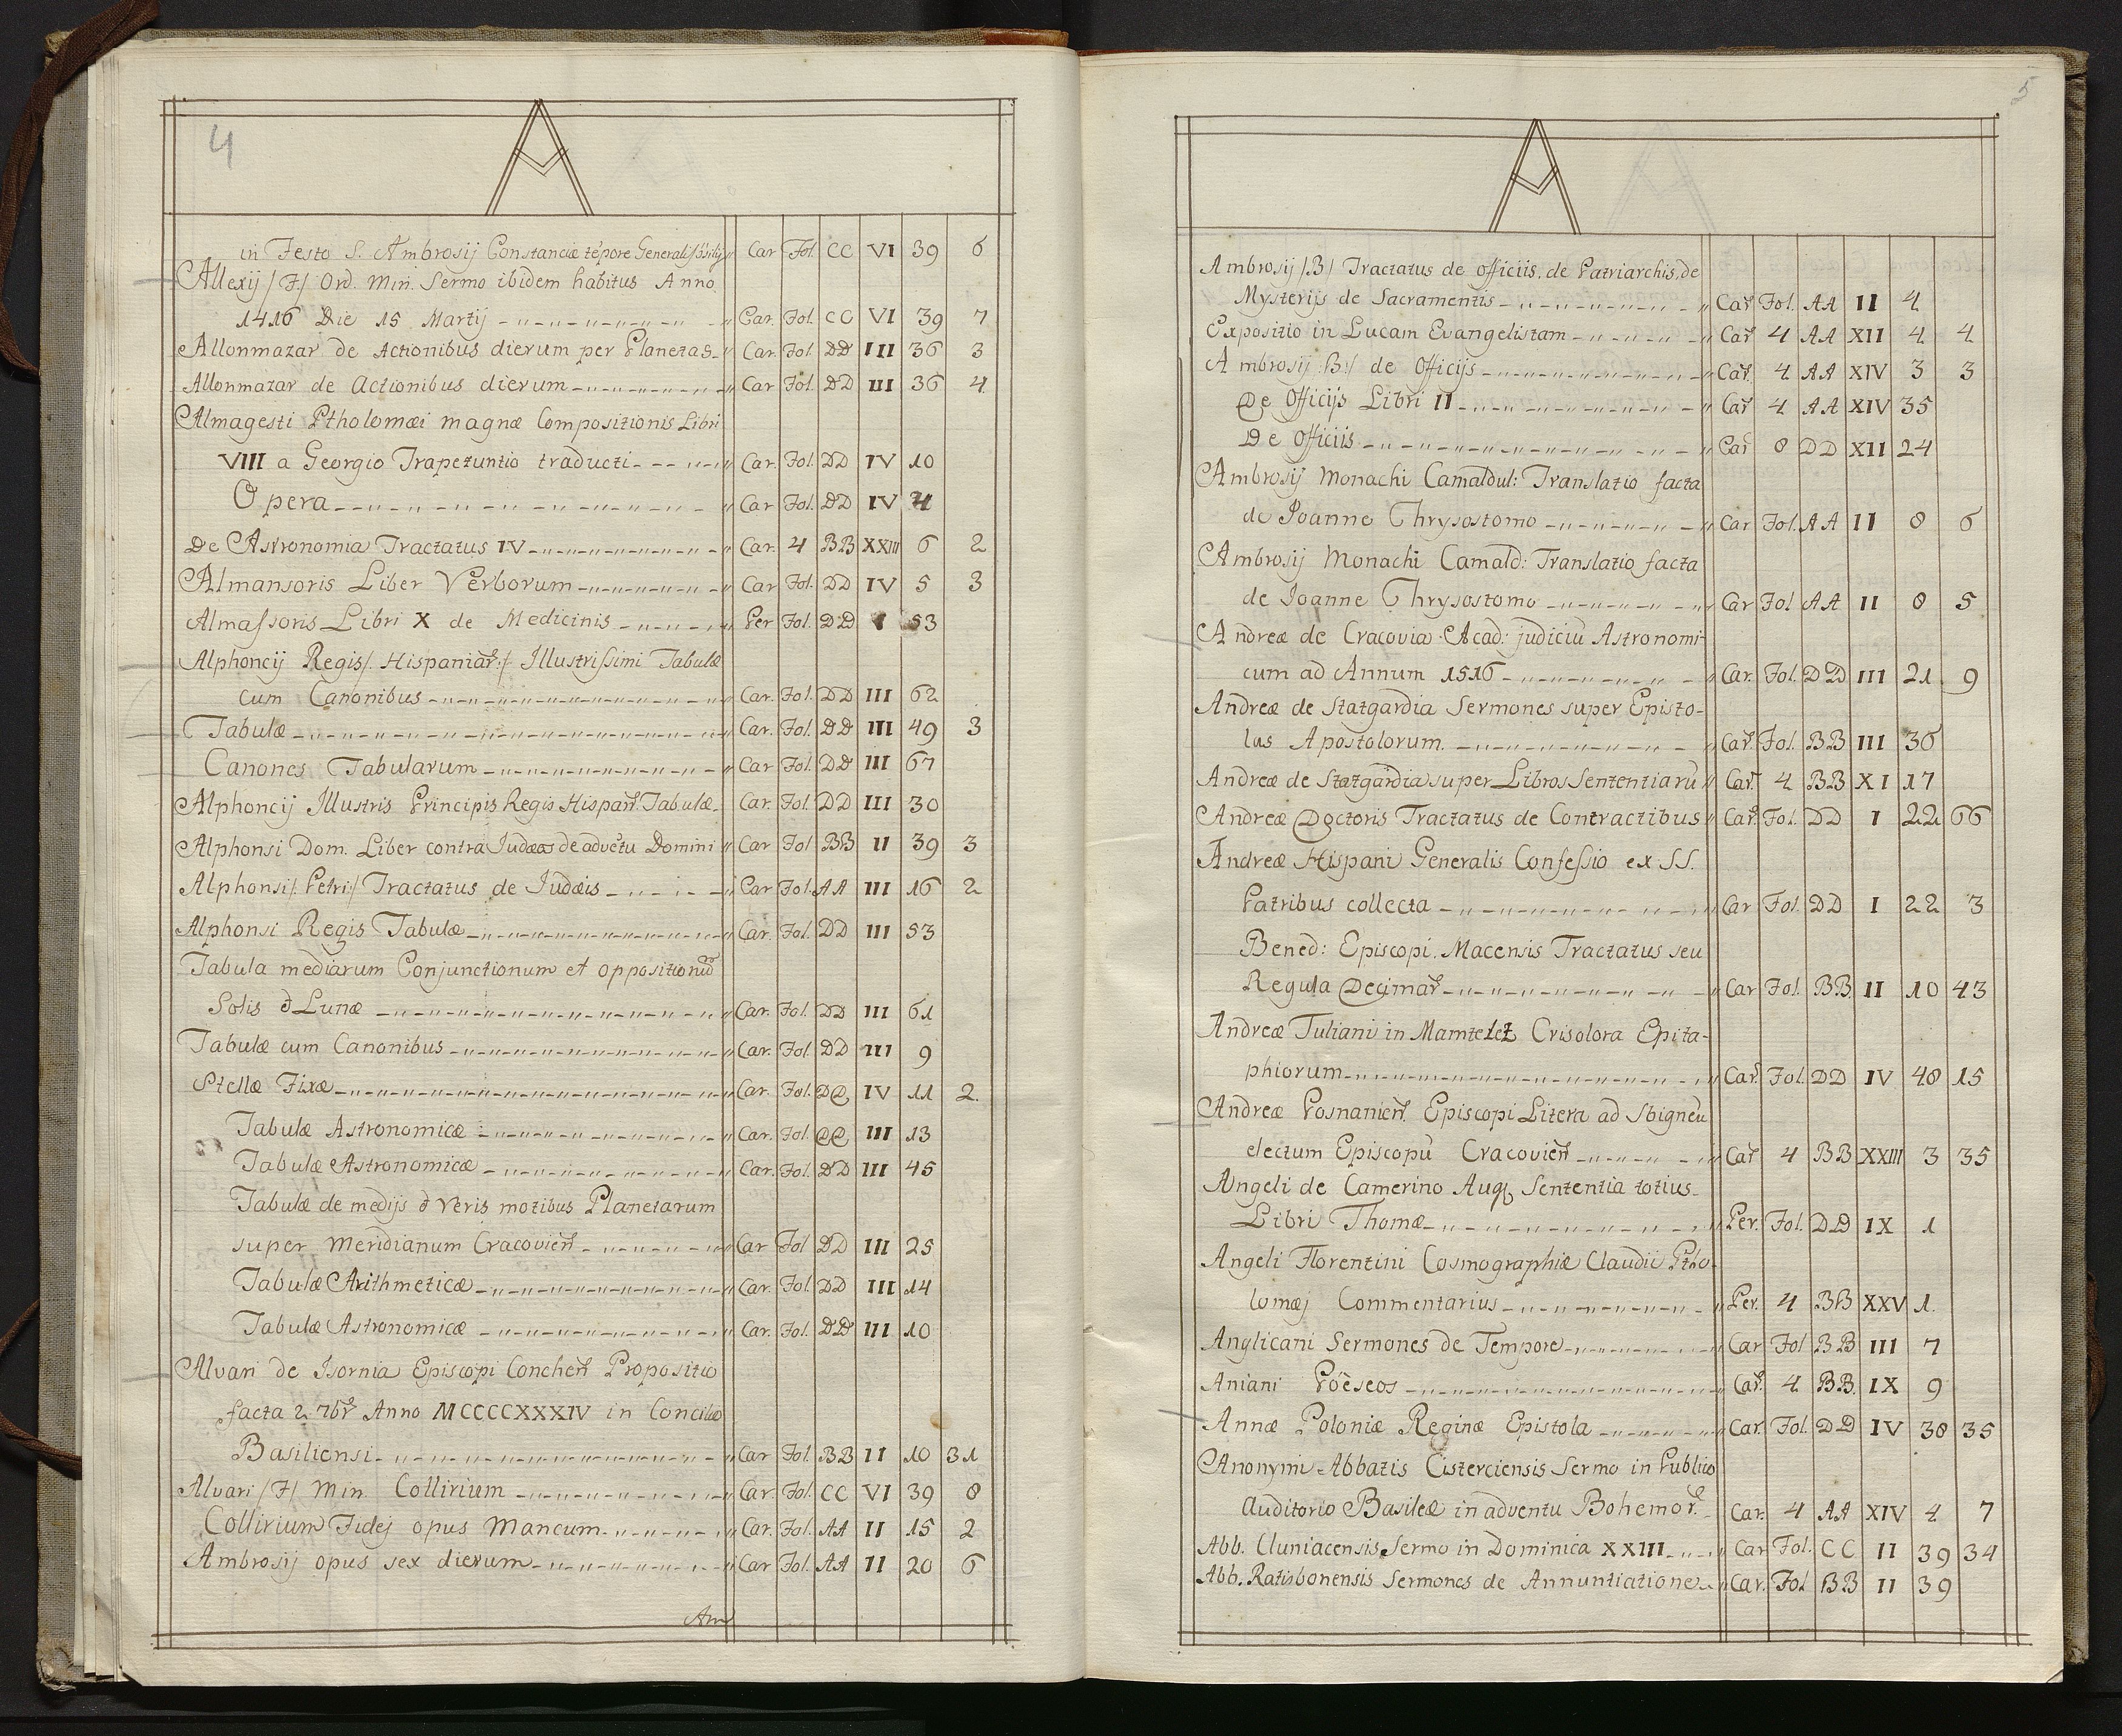 4
A
in Festo S. Ambrosij Constanciæ tēpore Generalis Cōsilij " Car Fol. CC VI 39 6
Allexij /F/ Ord. Min. Sermo ibidem habitus Anno
1416 Die 15 Martij " Car. Fol. CC VI 39 7
Allonmazar de Actionibus dierum per Planetas " Car. Fol. DD III 36 3
Allonmazar de Actionibus dierum " Car Fol. DD III 36 4
Almagesti Ptholomæi magnæ Compositionis Libri
VIII a Georgio Trapetuntio traducti " Car. Fol. DD IV 10
Opera " Car Fol. DD IV 4
De Astronomia Tractatus IV " Car. 4 BB XXIII 6 2
Almansoris Liber Verborum " Car Fol. DD IV 5 3
Almasſoris Libri X de Medicinis " Per Fol. DD I 53
Alphoncij Regis /. Hispaniar̃ :/ Illustrisſimi Tabulæ
cum Canonibus " Car. Fol. DD III 62
Tabulæ " Car. Fol. DD III 49 3
Canones Tabularum " Car Fol. DD III 67
Alphoncij Illustris Principis Regis Hispan̄. Tabulæ Car. Fol. DD III 30
Alphonsi Dom. Liber contra Judæos de advētu Domini " Car Fol BB II 39 3
Alphonsi /. Petri :/ Tractatus de Judæis " Car Fol. AA III 16 2
Alphonsi Regis Tabulæ " Car. Fol. DD III 53
Tabula mediarum Conjunctionum et oppositionū
Solis & Lunæ " Car. Fol. DD III 61
Tabulæ cum Canonibus " Car. Fol. DD III 9
Stellæ Fixæ " Car. Fol. DD IV 11 2
Tabulæ Astronomicæ " Car. Fol. DD III 13
Tabulæ Astronomicæ " Car. Fol. DD III 45
Tabulæ de medijs & Veris motibus Planetarum
super Meridianum Cracovien̄ " Car Fol DD III 25
Tabulæ Arithmeticæ " Car. Fol. DD III 14
Tabulæ Astronomicæ " Car. Fol. DD III 10
Alvari de Isornia Episcopi Conchen̄ Propositio
facta 2 7br̃ Anno MCCCCXXXIV in Concilio
Basiliensi " Car Fol. BB II 10 31
Alvari /F/ Min. Collirium " Car. Fol. CC VI 39 8
Collirium Fidej opus Mancum " Car. Fol. AA II 15 2
Ambrosij opus sex dierum " Car Fol. AA II 20 6
Am
5
A
Ambrosij /B/ Tractatus de officiis, de Patriarchis, de
Mysterijs de Sacramentis " Car Fol. AA II 4
Expositio in Lucam Evangelistam " Car 4 AA XII 4 4
Ambrosij :B:/ de Officijs " Car. 4 AA XIV 3 3
De Officijs Libri II " Car 4 AA XIV 35
De Officiis " Car 8 DD XII 24
Ambrosij Monachi Camaldul: Translatio facta
de Joanne Chrysostomo " Car Fol. AA II 8 6
Ambrosij Monachi Camald: Translatio facta
de Joanne Chrysostomo " Car Fol AA II 8 5
Andreæ de Cracovia Acad: judiciū Astronomi-
cum ad Annum 1516 " Car. Fol. DD III 21 9
Andreæ de Statgardia Sermones super Episto-
las Apostolorum " Car. Fol. BB III 36
Andreæ de Statgardia super Libros Sententiarū " Car. 4 BB XI 17
Andreæ Doctoris Tractatus de Contractibus " Car. Fol. DD I 22 66
Andreæ Hispani Generalis Confesſio ex SS.
Patribus collecta " Car Fol. DD I 22 3
Bened: Episcopi Macensis Tractatus seu
Regula Decimar̃ " Car Fol. BB II 10 43
Andreæ Juliani in Mamtelez Crisolora Epita-
phiorum " Car. Fol. DD IV 48 15
Andreæ Posnanien̄. Episcopi Litera ad Sbigneū
electum Episcopū Cracovien̄ " Car 4 BB XXIII 3 35
Angeli de Camerino Aug. Sententia totius
Libri Thomæ " Per. Fol. DD IX 1
Angeli Florentini Cosmographiæ Claudii Ptho-
lomæj Commentarius " Per. 4 BB XXV 1.
Anglicani Sermones de Tempore " Car Fol BB III 7
Aniani Poëseos " Car. 4 BB. IX 9
Annæ Poloniæ Reginæ Epistola " Car. Fol. DD IV 38 35
Anonymi Abbatis Cisterciensis Sermo in Publico
Auditorio Basileæ in adventu Bohemor̃. Car. 4 AA XIV 4 7
Abb. Cluniacensis Sermo in Dominica XXIII " Car Fol. CC II 39 34
Abb. Ratisbonensis Sermones de Annuntiatione " Car. Fol BB II 39